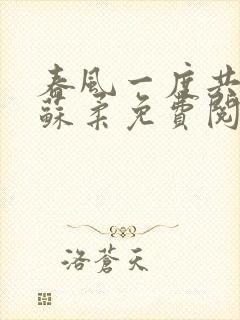 春風一度共
蘇柔免費閱
洛蒼天